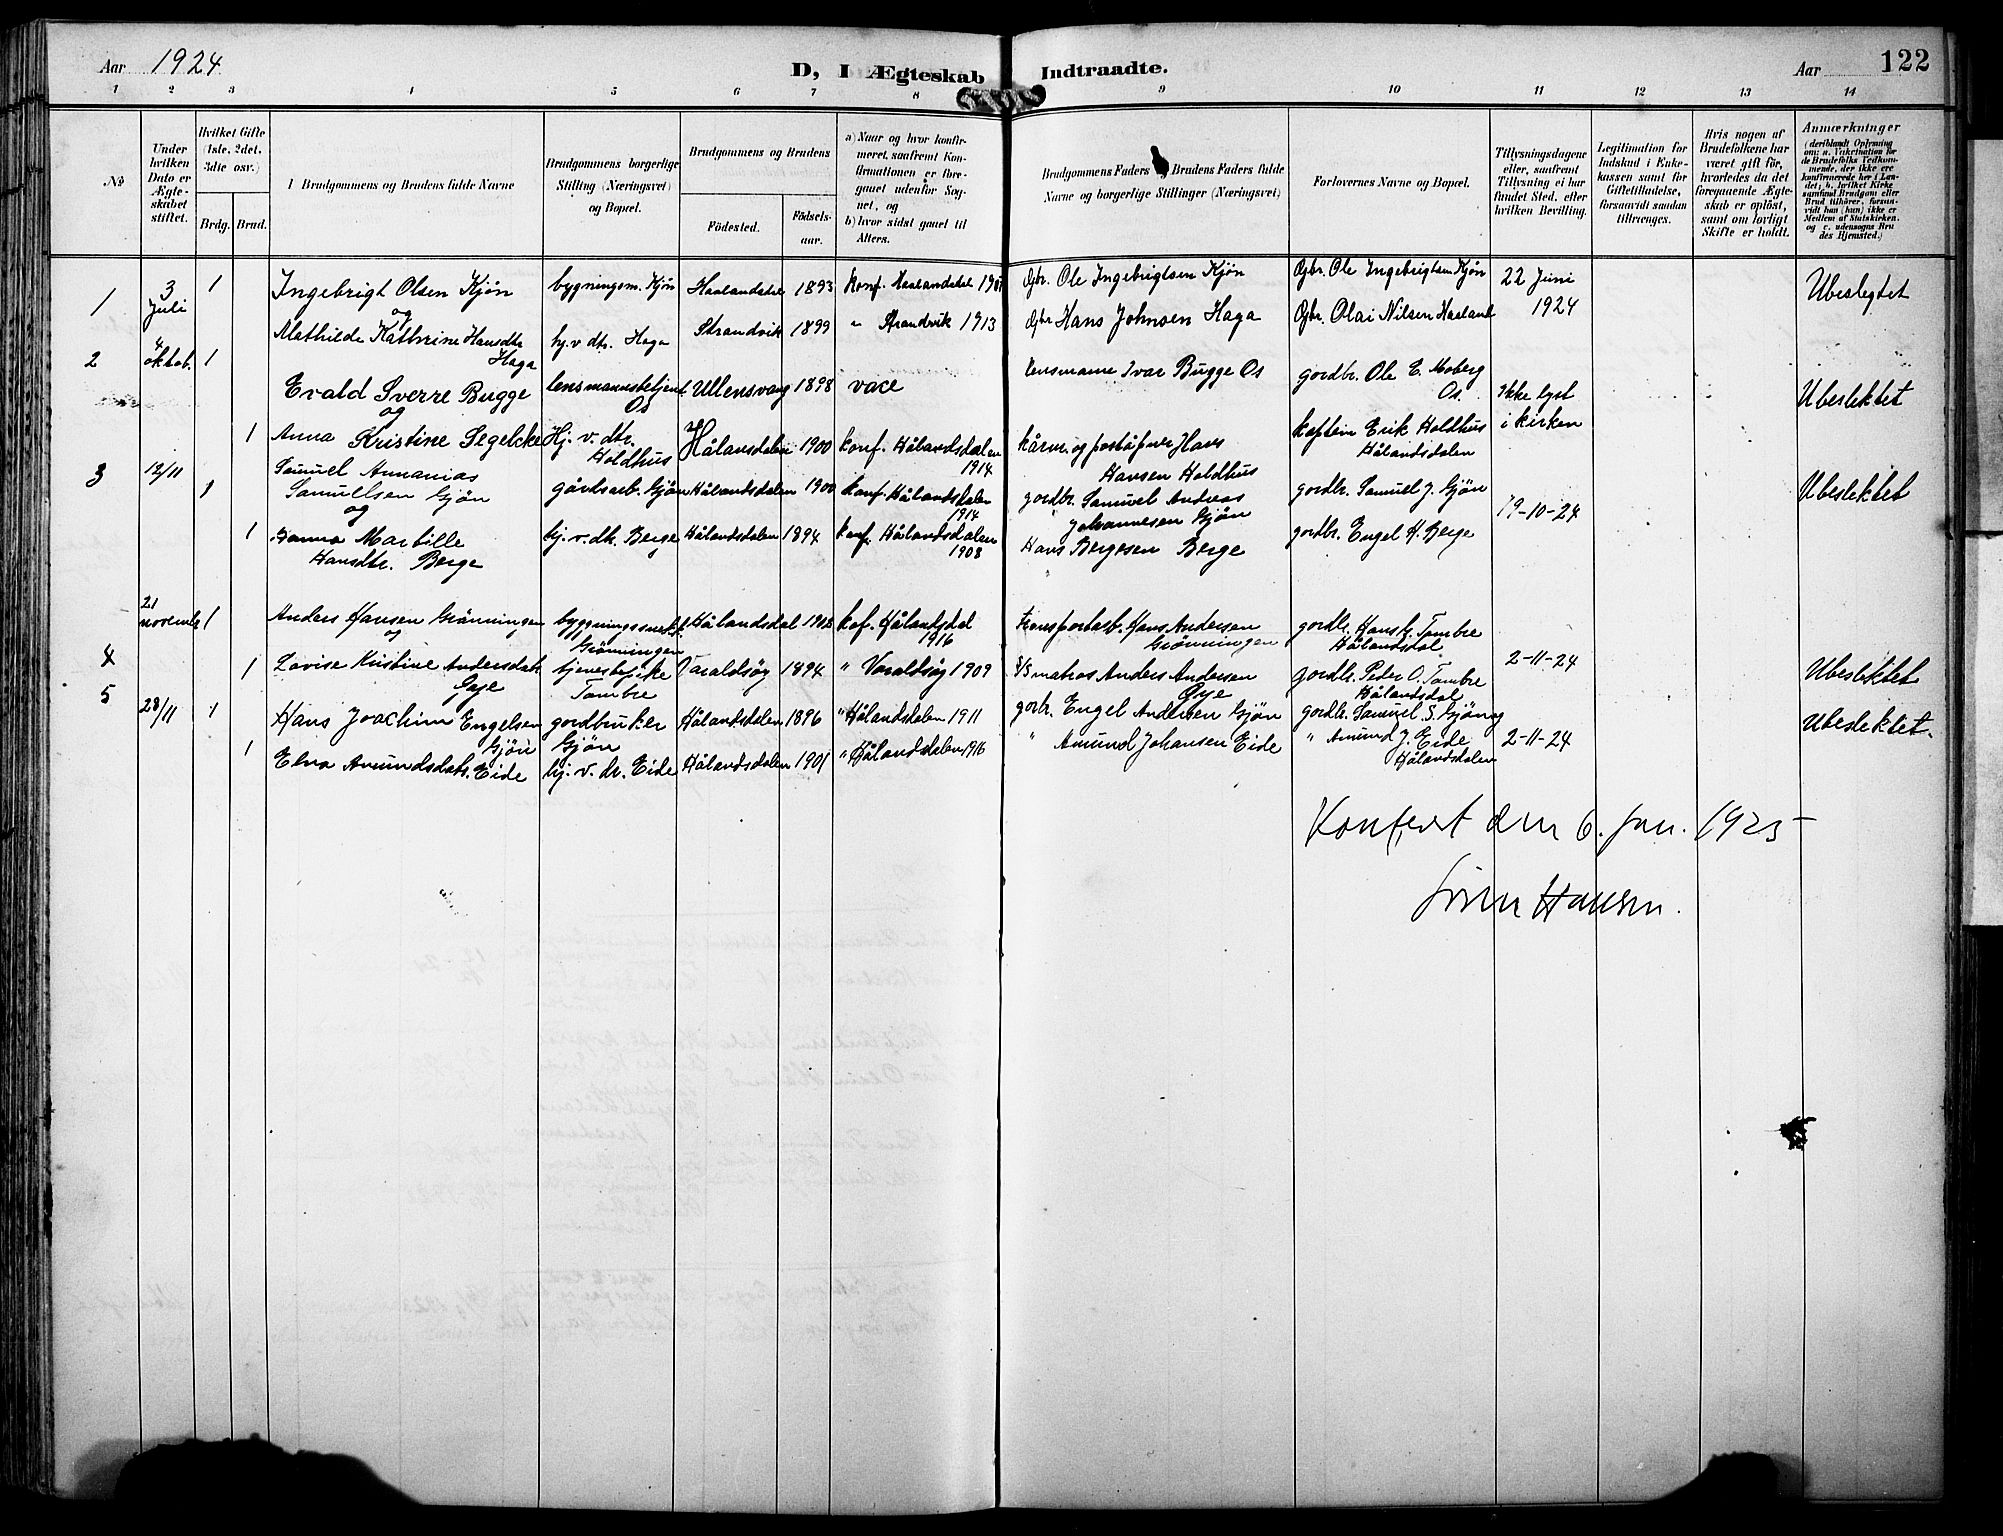 Aar 1924
D, I Ægteskab Indtraadte.
Aar 122
1 2 3 4 5 6 7 8 9 10 11 12 13 14
No
Under hvilken Dato er Ægteskabet stiftet.
Hvilket Gifte (1ste, 2det, 3die osv.)
Brdg. Brud.
I Brudgommens og Brudens fulde Navne
Brudgommens borgerlige Stilling (Næringsvei) og Bopæl.
Brudgommens og Brudens
Födested. Födselsaar.
a) Naar og hvor konfirmeret, saafremt Konfirmationen er foregaaet udenfor Sognet, og
b) hvor sidst gaaet til Alters.
Brudgommens Faders Brudens Faders fulde Navne og borgerlige Stillinger (Næringsvei)
Forlovernes Navne og Bopæl.
Tillysningsdagene eller, saafremt Tillysning ei har fundet Sted, efter hvilken Bevilling.
Legitimation for Indskud i Enkekassen samt for Giftetilladelse, forsaavidt saadan tiltrænges.
Hvis nogen af Brudefolkene har været gift för, hvorledes da det foregaaende Ægteskab er oplöst, samt om lovligt Skifte er holdt.
Anmærkninger (deriblandt Oplysning om: a. Vakcination for de Brudefolks Vedkommende, der ikke ere konfirmerede her i Landet; b. hvilket Kirkesamfund Brudgom eller Brud tilhörer, forsaavidt han (hun) ikke er Medlem af Statskirken. og c. udensogns Brudes Hjemsted.)
1 3 Juli 1 Ingebrigt Olsen Kjön bygningsm. Kjön Haalandsdal 1893 konf. Haalandsdal Gbr. Ole Ingebrigtsen Kjön Gbr. Ole Ingebrigtsen Kjön 22 Juni 1924 Ubeslegtet
og
Mathilde Kathrine Hansdtr Haga hj.v dtr. Haga Strandvik 1899 " Strandvik 1913 Gbr Hans Johnsen Haga Gbr. Olai Nilsen Haaland
2 4 oktob. 1 Evald Sverre Bugge lensmannsbetjent Os Ullensvang 1898 vace lensmann Ivar Bugge Os gordbr. Ole E. Moberg Os. Ikke lyst i kirken Ubeslektet
og
1 Anna Kristine Segelcke Hj. v. dtr. Holdhus Hålandsdalen 1900 konf. Hålandsdalen 1914 kårm. og poståpner Hans Hansen Holdhus kaptein Erik Holdhus Hålandsdalen
3 12/11 1 Samuel Annanias Samuelsen Gjön gårdsarb. Gjön Hålandsdalen 1900 konf. Hålandsdalen 1914 gordbr. Samuel Andreas Johannesen Gjön gordbr. Samuel J. Gjön 19-10-24 Ubeslektet
og
1 Hanna Martille Hansdtr. Berge hj. v. dtr. Berge Hålandsdalen 1894 konf. Hålandsdalen 1908 Hans Bergesen Berge gordbr. Engel H. Berge
4 21 november 1 Anders Hansen Grönningen byggningssnekk. Grönningen Hålandsdal kof. Hålandsdal 1916 transportarb. Hans Andersen Grönningen gordbr. Hans Tombre Hålandsdal 2-11-24 Ubeslektet
og
1 Lovise Kristine Andersdatr. Öye tjenestepike Tombre Varaldsöy 1894 " Varaldsöy 1909 matros Anders Andersen Öye gordbr. Peder O. Tombre Hålandsdal
5 28/11 1 Hans Joachim Engelsen Gjön gordbruker Gjön Hålandsdalen 1896 " Hålandsdalen 1911 gorbr. Engel Andersen Gjön gordbr. Samuel S. Gjön og 2-11-24 Ubeslektet.
1 Elna Amundsdatr. Eide hj. v. dr. Eide Hålandsdalen 1901 " Hålandsdalen 1916 " Amund Johansen Eide " Amund J. Eide Hålandsdalen
Konfert den 6. Jan. 1925
Hansen.